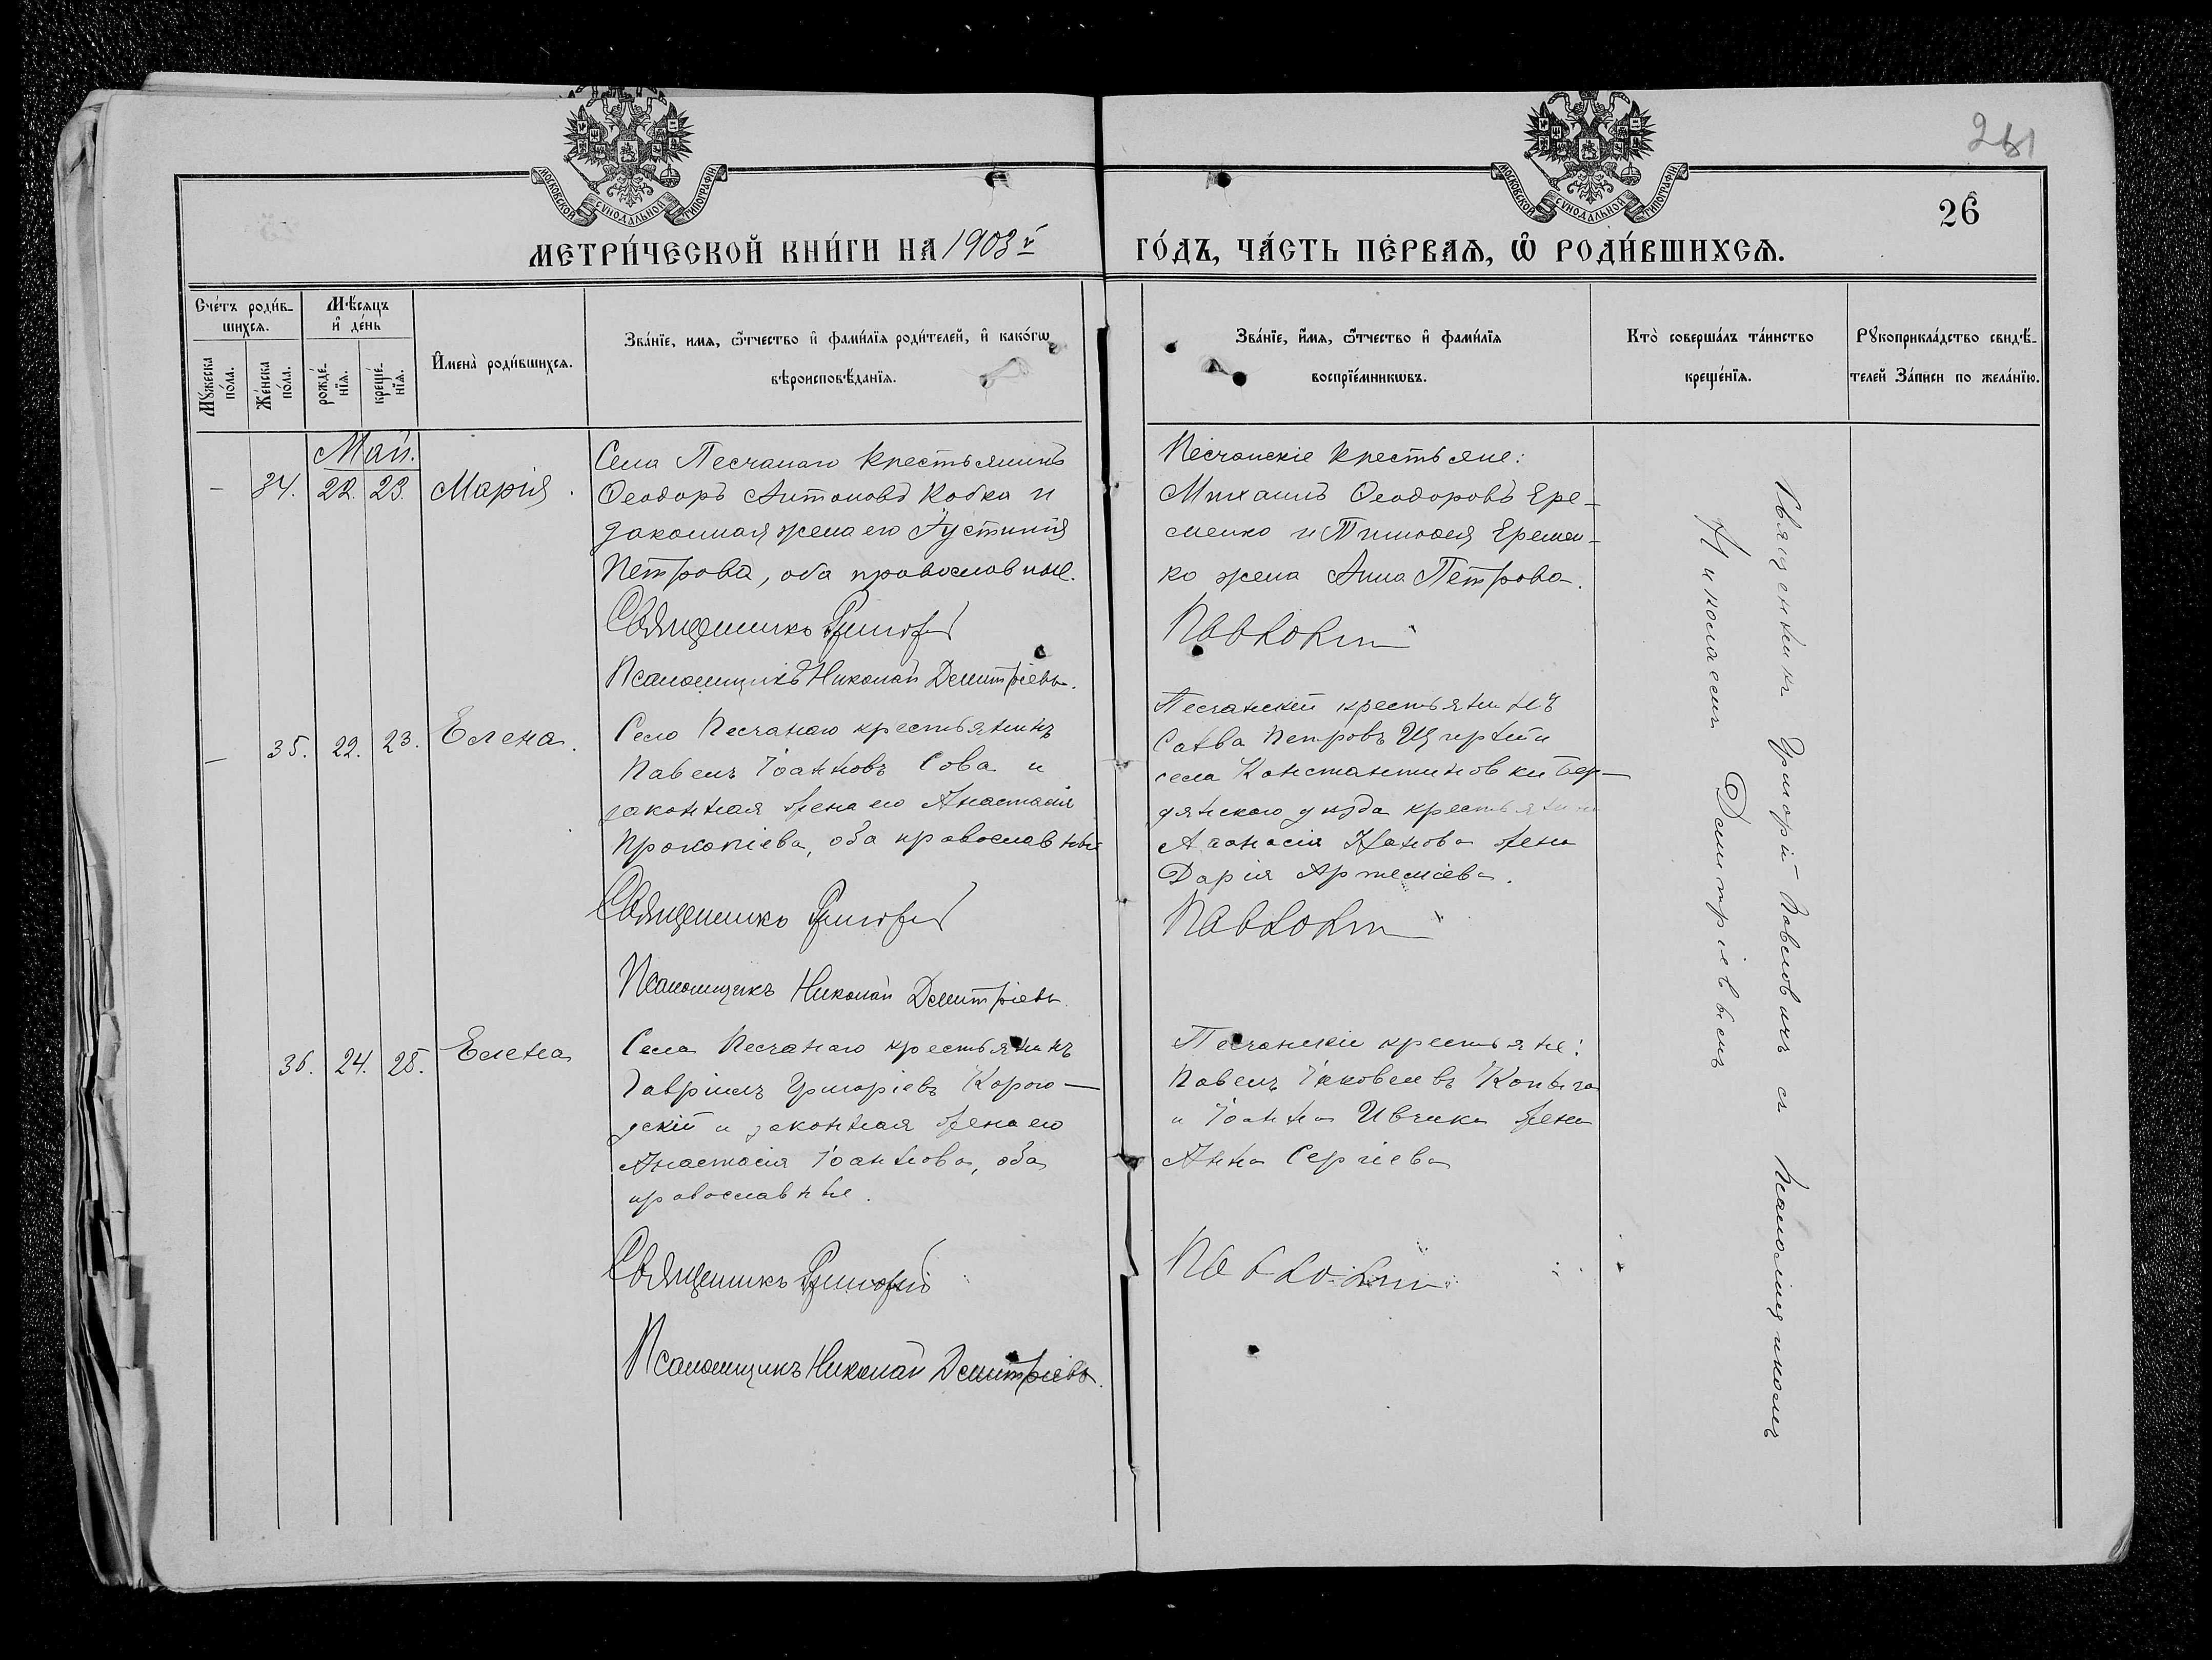 МОСКОВСКОЙ СѴНОДАЛЬНОЙ ТИПОГРАФІИ
МОСКОВСКОЙ СѴНОДАЛЬНОЙ ТИПОГРАФІИ
26
МЕТРИ́ЧЕСКОЙ КНИ́ГИ НА 1903й
ГО́ДЪ, ЧА́СТЬ ПЕ́РВАѦ, Ѿ РОДИ́ВШИХСѦ.
Сче́тъ роди́в-
шихсѧ.
Мꙋжеска по́ла.
Же́нска по́ла.
Мѣ́сѧцъ
и҆ де́нь
рожде́-нїѧ.
креще́-нїѧ.
И҆мена̀ роди́вшихсѧ.
Зва́нїе, имѧ, ѻ҆́тчество и҆ фами́лїѧ роди́телей, и҆ како́гѡ
вѣроисповѣ́данїѧ.
Зва́нїе, и҆́мѧ, ѻ҆́тчество и҆ фами́лїѧ
воспрїе́мникѡвъ.
Кто̀ соверша́лъ та́инство
креще́нїѧ.
Рꙋкоприкла́дство свидѣ́-
телей За́писи по жела́нїю.
Май.
– 34. 22. 23. Марія.
Села Песчанаго крестьянинъ
Ѳеодоръ Антоновъ Кобка и
законная жена его Іустинія
Петрова, оба православные.
Священникъ Григорій
Псаломщикъ Николай Демитріевъ.
Песчанскіе крестьяне:
Михаилъ Ѳеодоровъ Ере-
менко и Тимоѳея Еремен-
ко жена Анна Петрова.
Павловскій
– 35. 22. 23. Елена.
Село Песчанаго крестьянинъ
Павелъ Іоанновъ Сова и
законная жена его Анастасія
Прокопіева, оба православные
Священникъ Григорій
Псаломщикъ Николай Демитріевъ.
Песчанскій крестьянинъ
Савва Петровъ и
села Константиновки Бер-
дянскаго уѣзда крестьянина
Аѳанасія жена
Дарія Артеміева.
36. 24. 25. Елена
Села Песчанаго крестьянинъ
Гавріилъ Григоріевъ
и законная жена его
Анастасія Іоаннова, оба
православные.
Священникъ Григорій
Псаломщикъ Николай Демитріевъ.
Песчанскіе крестьяне:
Павелъ Іаковлевъ
и Іоанна жена
Анна Сергіева
Священникъ Григорій съ Псаломщикомъ
Николаемъ Димитріевымъ